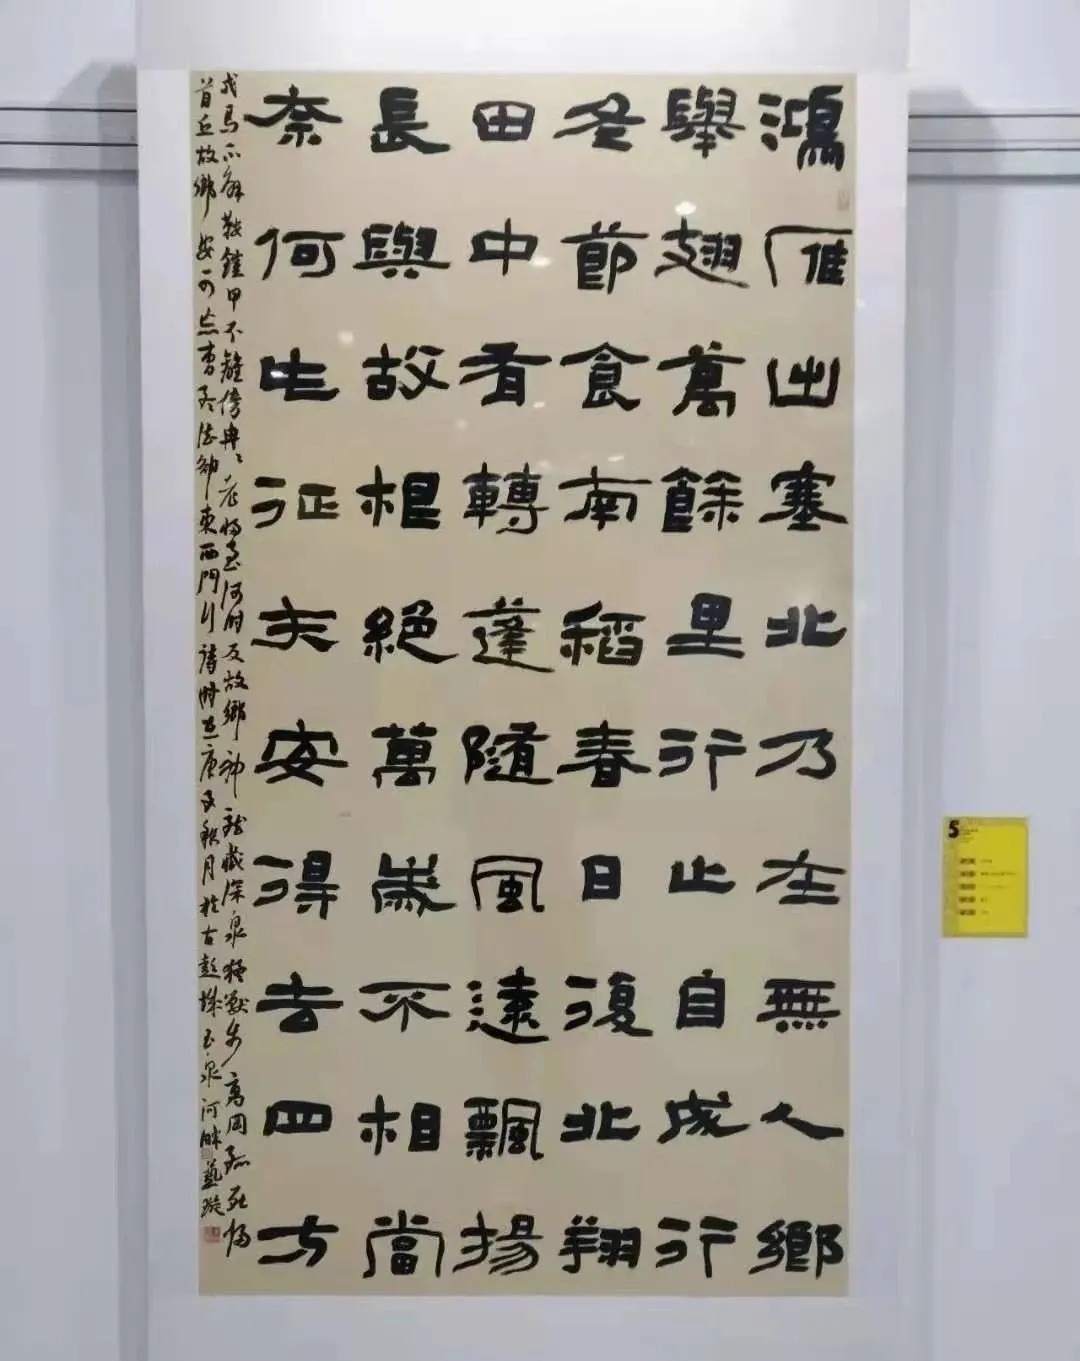 鴻雁出塞北乃在無人鄉
舉翅萬餘里行止自成行
冬節食南稻春日復北翔
田中有轉蓬隨風遠飄揚
長與故根絕萬歲不相當
奈何此征夫安得去四方
戎馬不解鞍鎧甲不離傍冉〻老將至何時反故鄉神龍藏深泉猛獸步高岡狐死歸
首丘故鄉安可忘曹孟德卻東西門行詩時在庚子秋月於古彭城玉泉河畔藝璇
5